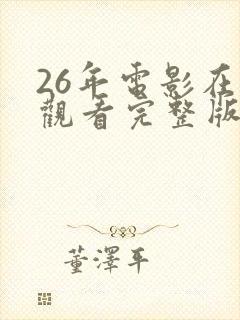 26年電影在
觀看完整版
董澤平